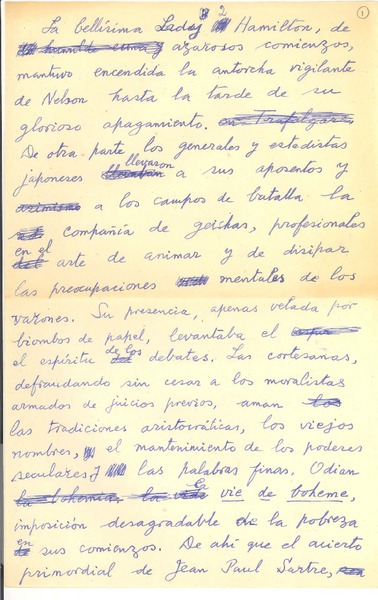 3 2 1
La bellísima Lady Hamilton, de
humilde cuna y azarosos comienzos,
mantuvo encendida la antorcha vigilante
de Nelson hasta la tarde de su
glorioso apagamiento. en Trafalgar.
De otra parte los generales y estadistas
japoneses llevaban llevaron a sus aposentos y
asimismo a los campos de batalla la
compañía de geishas, profesionales
del en el arte de animar y de disipar
las preocupaciones mentales de los
varones. Su presencia, apenas velada por
biombos de papel, levantaba el
el espíritu de los debates. Las cortesanas,
defraudando sin cesar a los moralistas
armados de juicios previos, aman los
las tradiciones aristocráticas, los viejos
nombres, el mantenimiento de los poderes
seculares y las palabras finas. Odian
la bohemia, la vida la vie de boheme,
imposición desagradable de la pobreza
en sus comienzos. De ahí que el acierto
primordial de Jean Paul Sartre,